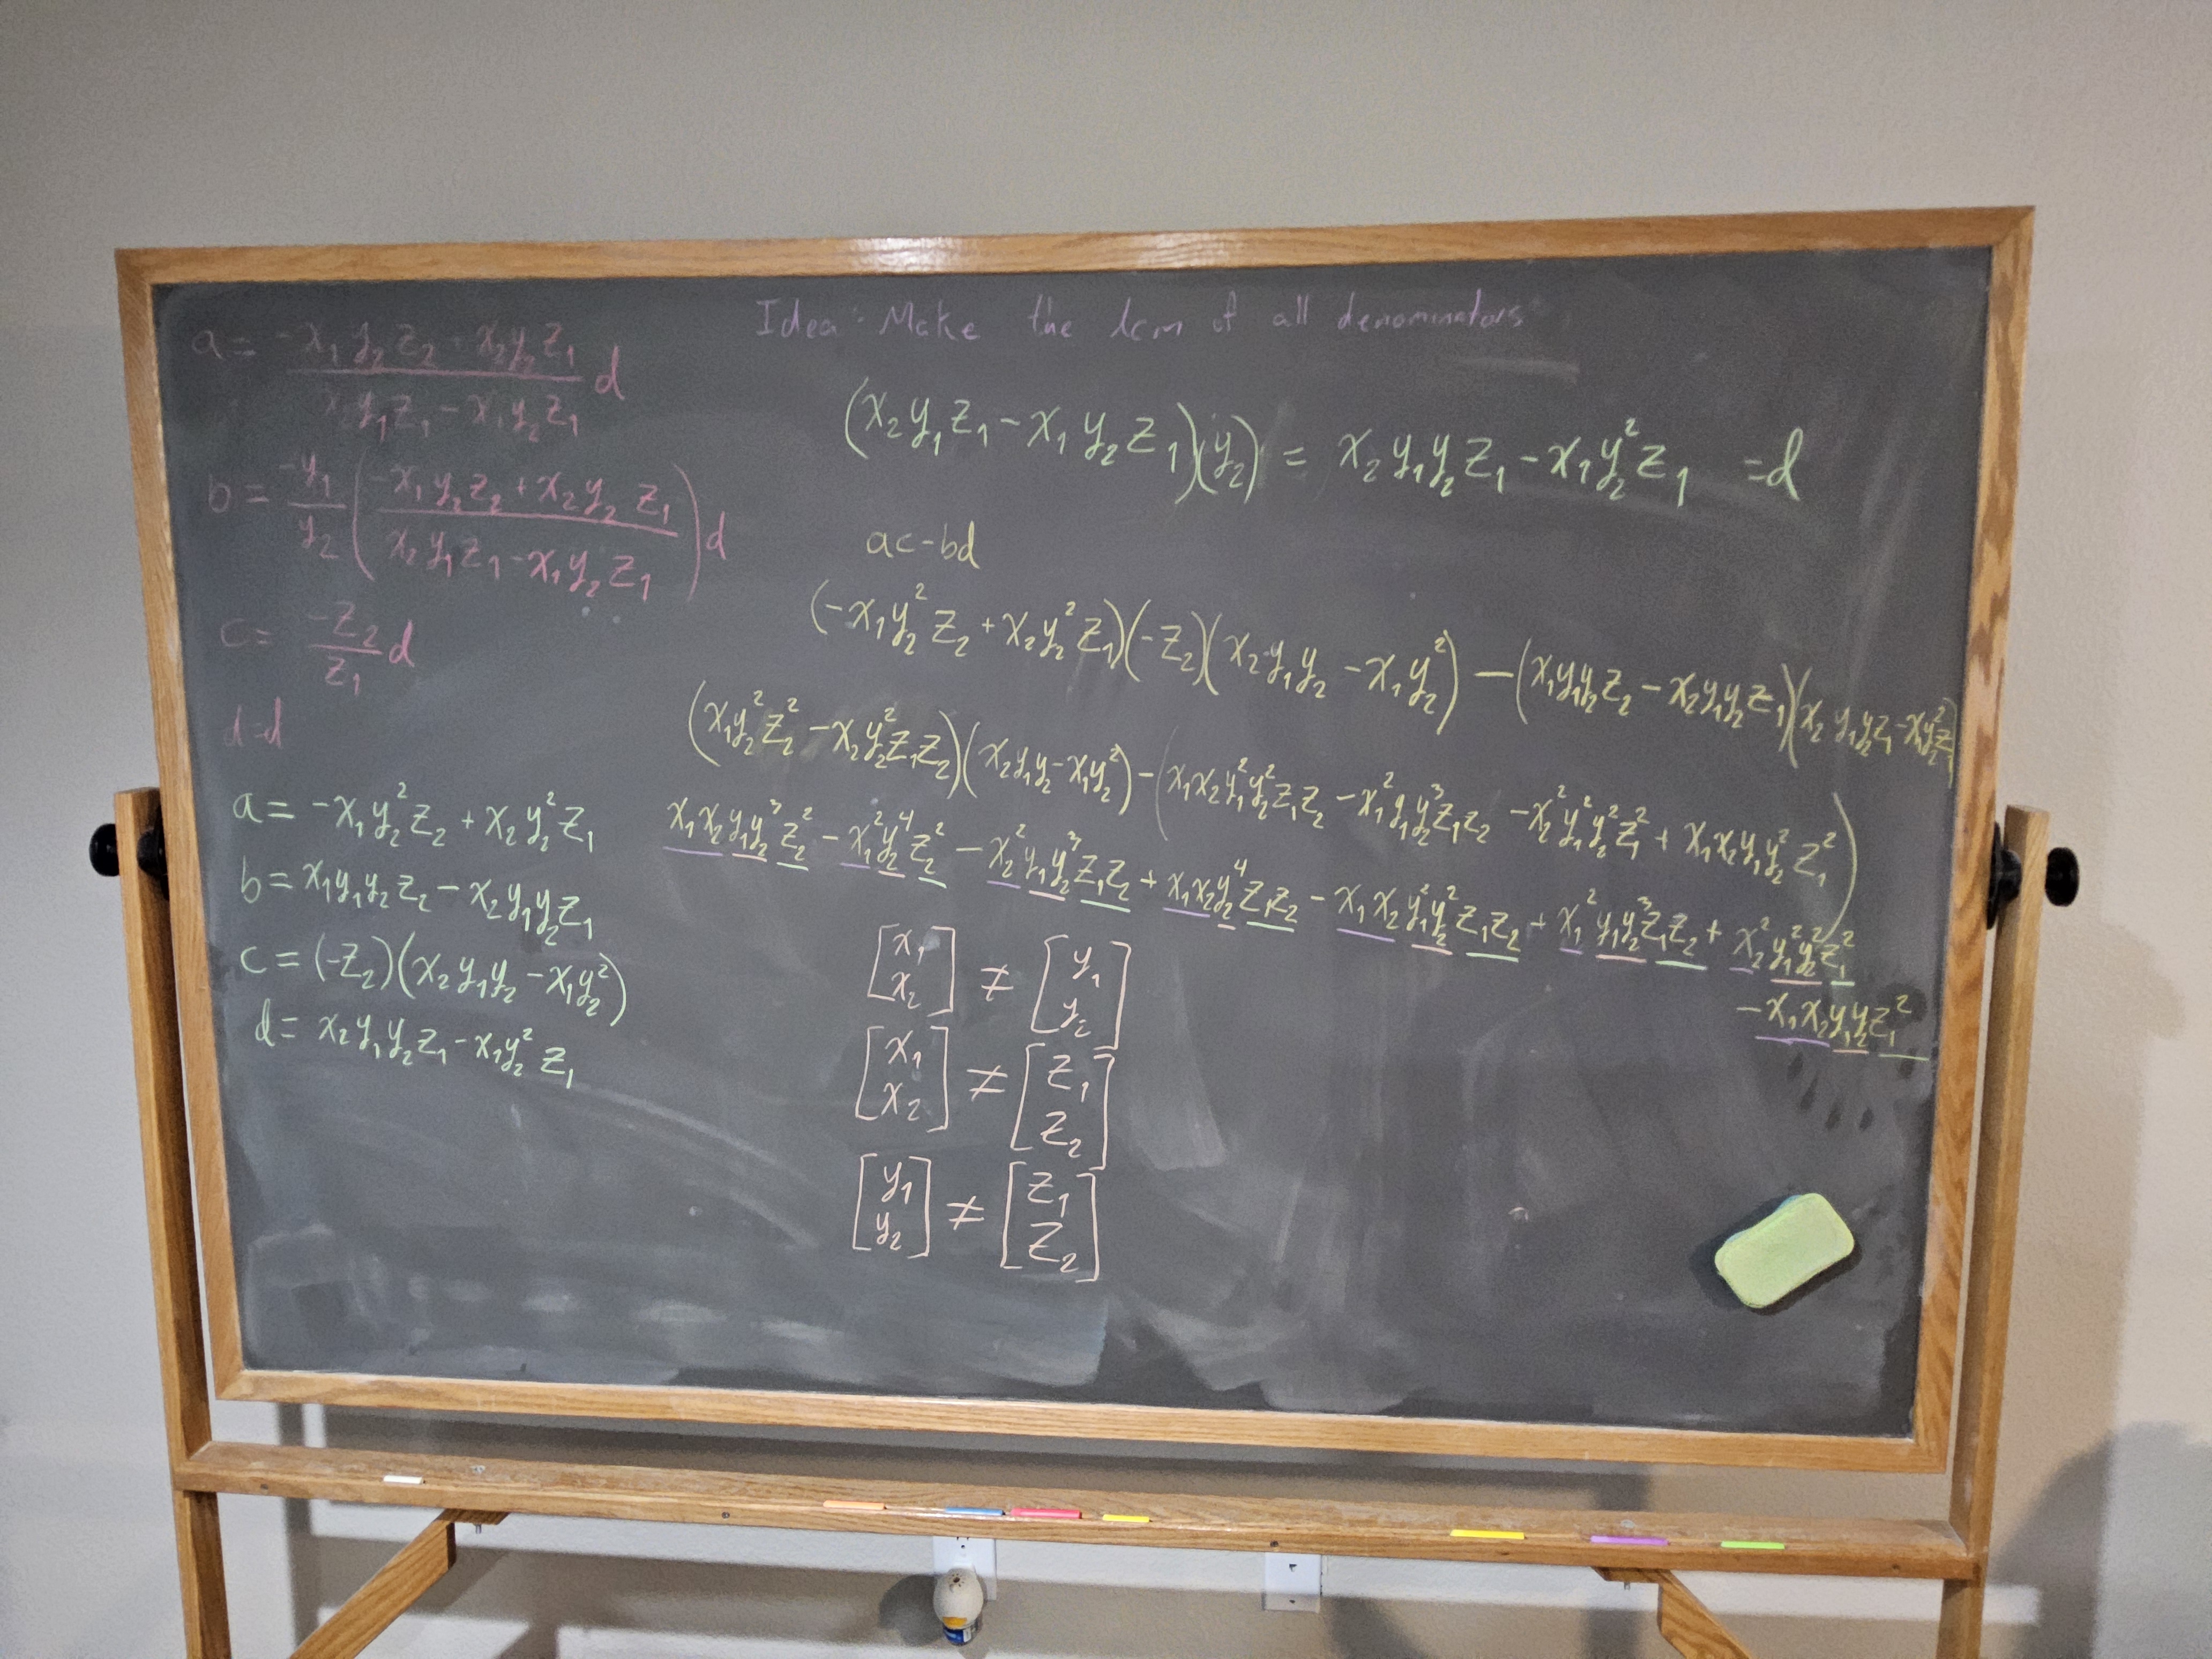 a = (-x₁y₂z₂ + x₂y₂z₁)/(x₂y₁z₁ - x₁y₂z₁) d
b = -y₁/y₂ ((-x₁y₂z₂ + x₂y₂z₁)/(x₂y₁z₁ - x₁y₂z₁)) d
c = -z₂/z₁ d
d = d
a = -x₁y₂²z₂ + x₂y₂²z₁
b = x₁y₁y₂z₂ - x₂y₁y₂z₁
c = (-z₂)(x₂y₁y₂ - x₁y₂²)
d = x₂y₁y₂z₁ - x₁y₂²z₁
Idea: Make the lcm of all denominators
(x₂y₁z₁ - x₁y₂z₁)(y₂) = x₂y₁y₂z₁ - x₁y₂²z₁ = d
ac - bd
(-x₁y₂²z₂ + x₂y₂²z₁)(-z₂)(x₂y₁y₂ - x₁y₂²) - (x₁y₁y₂z₂ - x₂y₁y₂z₁)(x₂y₁y₂z₁ - x₁y₂²z₁)
(x₁y₂²z₂² - x₂y₂²z₁z₂)(x₂y₁y₂ - x₁y₂²) - (x₁x₂y₁²y₂²z₁z₂ - x₁²y₁y₂³z₁z₂ - x₂²y₁²y₂²z₁² + x₁x₂y₁y₂²z₁²)
x₁x₂y₁y₂³z₂² - x₁²y₂⁴z₂² - x₂²y₁y₂³z₁z₂ + x₁x₂y₂⁴z₁z₂ - x₁x₂y₁²y₂²z₁z₂ + x₁²y₁y₂³z₁z₂ + x₂²y₁²y₂²z₁²
- x₁x₂y₁y₂z₁²
[x₁ x₂] ≠ [y₁ y₂]
[x₁ x₂] ≠ [z₁ z₂]
[y₁ y₂] ≠ [z₁ z₂]